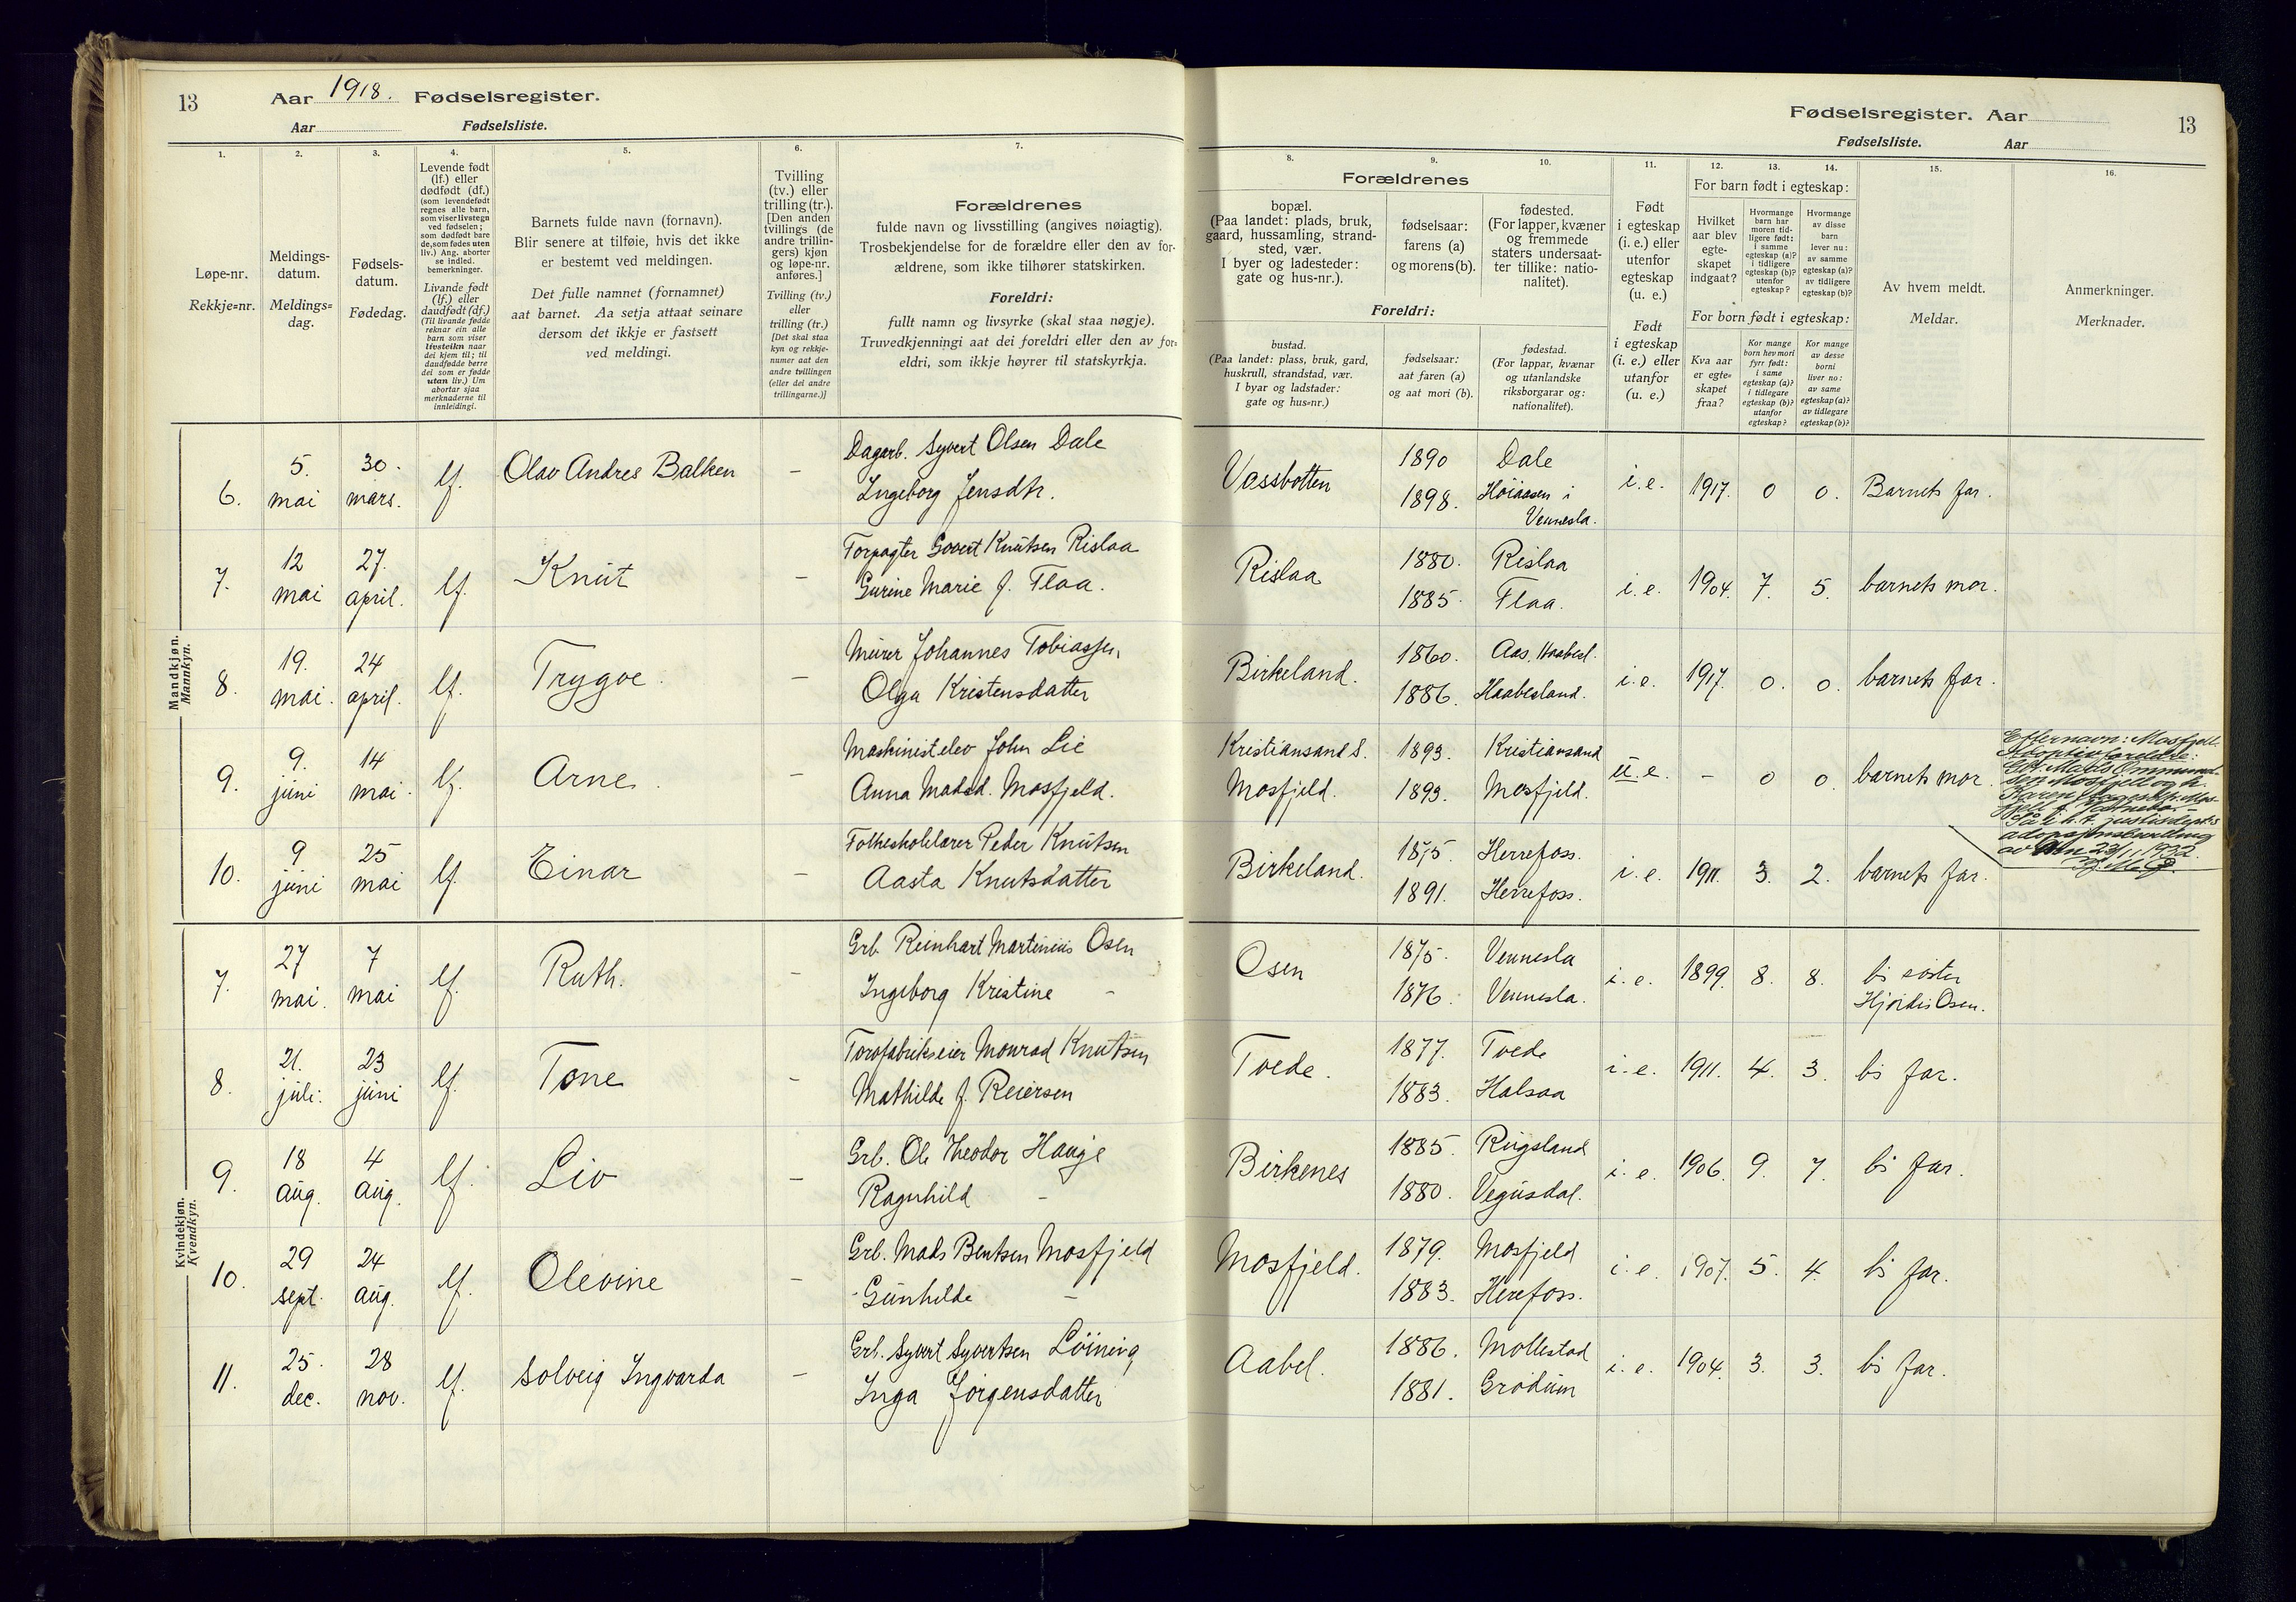 13
Aar 1918. Fødselsregister.
Aar Fødselsliste.
1.
2.
3.
4.
5.
6.
7.
Løpe-nr.
Rekkje=nr.
Meldings-
datum.
Meldings=
dag.
Fødsels-
datum.
Fødedag.
Levende født
(lf.) eller
dødfødt (df.)
(som levendefødt
regnes alle barn,
som viser livstegn
ved fødselen;
som dødfødt bare
de, som fødes uten
liv.) Ang. aborter
se indled.
bemerkninger.
Livande født
(lf.) eller
daudfødt (df.)
(Til livande fødde
reknar ein alle
barn som viser
livsteikn naar
dei kjem til; til
daudfødde berre
dei som er fødde
utan liv.) Um
abortar sjaa
merknaderne til
innleidingi.
Barnets fulde navn (fornavn).
Blir senere at tilføie, hvis det ikke
er bestemt ved meldingen.
Det fulle namnet (fornamnet)
aat barnet. Aa setja attaat seinare
dersom det ikkje er fastsett
ved meldingi.
Tvilling
(tv.) eller
trilling (tr.).
[Den anden
tvillings (de
andre trillin-
gers) kjøn
og løpe-nr.
anføres.]
Tvilling (tv.)
eller
trilling (tr.)
[Det skal staa
kyn og rekkje-
numer aat den
andre tvillingen
(eller dei andre
trillingarne.)]
Forældrenes
fulde navn og livsstilling (angives nøiagtig).
Trosbekjendelse for de forældre eller den av for-
ældrene, som ikke tilhører statskirken.
Foreldri:
fullt namn og livsyrke (skal staa nøgje).
Truvedkjenningi aat dei foreldri eller den av for=
eldri, som ikkje høyrer til statskyrkja.
Mandkjøn.
Mannkyn.
6.
5.
mai
30.
mars.
lf.
Olav Andres Balken
-
Dagarb. Syvert Olsen Dale
Ingeborg Jensdtr.
7.
12
mai
27.
april.
lf.
Knut
-
Torpagter Govert Knutsen Rislaa
Gurine Marie f. Flaa.
8.
19.
mai.
24
april.
lf.
Trygve.
-
Murer Johannes Tobiassen
Olga Kristensdatter
9.
9.
juni
14
mai.
lf.
Arne.
-
Maskinistelev John Lie
Anna Madsd. Mosfjeld.
10.
9
juni
25
mai
lf.
Einar
-
Folkeskolelærer Peder Knutsen
Aasta Knutsdatter
Kvindekjøn.
Kvendkyn.
7.
27
mai.
7
mai
lf.
Ruth.
-
Grb. Reinhart Martinius Osen
Ingeborg Kristine -
8.
21.
juli.
23
juni
lf.
Tone
-
Torvfabrikseier Monrad Knutsen
Mathilde f. Reiersen
9.
18
aug.
4
aug.
lf.
Liv
-
Grb. Ole Theodor Hauge
Ragnhild -
10.
29
sept.
24
aug.
lf.
Olevine
-
Grb. Mads Bentsen Mosfjeld
Gunhilde -
11.
25.
dec.
28
nov.
lf.
Solveig Ingvarda
-
Grb. Syvert Syvertsen Löining
Inga Jörgensdatter
Fødselsregister. Aar
13
Fødselsliste. Aar
8.
9.
10.
11.
12.
13.
14.
15.
16.
Forældrenes
bopæl.
(Paa landet: plads, bruk,
gaard, hussamling, strand-
sted, vær.
I byer og ladesteder:
gate og hus-nr.).
fødselsaar:
farens (a)
og morens (b).
fødested.
(For lapper, kvæner
og fremmede
staters undersaat-
ter tillike: natio-
nalitet).
Foreldri:
bustad.
(Paa landet: plass, bruk, gard,
huskrull, strandstad, vær.
I byar og ladstader:
gate og hus=nr.)
fødselsaar:
aat faren (a)
og aat mori (b).
fødestad.
(For lappar, kvænar
og utanlandske
riksborgarar og:
nationalitet).
Født
i egteskap
(i. e.) eller
utenfor
egteskap
(u. e.)
Født
i egteskap
(i. e.) eller
utanfor
(u. e.)
For barn født i egteskap:
Hvilket
aar blev
egte-
skapet
indgaat?
Hvormange
barn har
moren tid-
ligere født:
i samme
egteskap (a)?
i tidligere
egteskap (b)?
utenfor
egteskap?
Hvormange
av disse
barn
lever nu:
av samme
egteskap (a)?
av tidligere
egteskap (b)?
For born født i egteskap:
Kva aar
er egte=
skapet
fraa?
Kor mange
born hev mori
fyrr født:
i same
egteskap (a)?
i tidlegare
egteskap (b)?
utanfor
egteskap?
Kor mange
av desse
borni
liver no:
av same
egteskap (a)?
av tidlegare
egteskap (b)?
Av hvem meldt.
Meldar.
Anmerkninger.
Merknader.
Vassbotten
1890
1898.
Dale
Höiaasen i
Vennesla.
i.e.
1917.
0
0.
Barnets far.
Rislaa
1880.
1885.
Rislaa
Flaa.
i.e.
1904.
7.
5.
barnets mor.
Birkeland.
1860.
1886.
Aas, Haabesl.
Haabesland.
i.e.
1917.
0.
0.
barnets far.
Kristiansand S.
Mosfjeld.
1893.
1893.
Kristiansand
Mosfjeld.
u.e.
-
0
0.
barnets mor.
Efternavn: Mosfjell.
Adoptivforeldre:
Mosfjell og h.
av den 23/1 1932.
Birkeland.
1875.
1891.
Herrefoss.
Herrefoss.
i.e.
1911.
3.
2.
barnets far.
Osen
1875.
1876.
Vennesla
Vennesla.
i.e.
1899.
8.
8.
bs söster
Hjördis Osen.
Tvede.
1877.
1883.
Tvede
Halsaa
i.e.
1911.
4.
3.
bs far.
Birkenes
1885.
1880.
Rugsland
Vegusdal.
i.e.
1906.
9.
7.
bs far.
Mosfjeld.
1879.
1883.
Mosfjeld
Herefoss.
i.e.
1907.
5.
4.
bs far.
Aabel.
1886.
1881.
Mollestad
Grödum
i.e.
1904.
3.
3.
bs far.